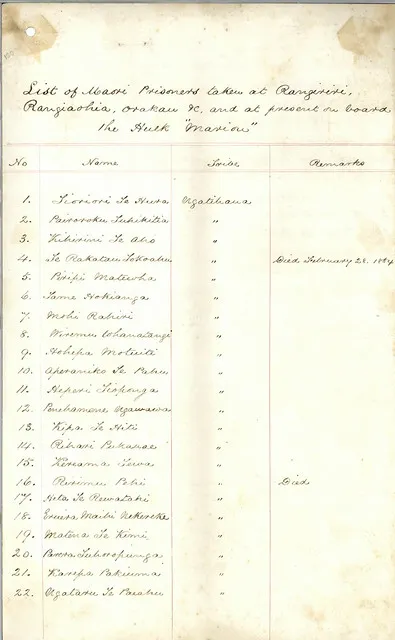 List of Maori Prisoners taken at Rangiriri,
Rangiaohia, Orakau &c, and at present on board
the Hulk "Marion"
No Name Tribe Remarks
1. Tioriori Te Hura Ngatihaua
2. Pairoroku Tuhikitia "
3. Kihirini Te Aho "
4. Te Rakatau "  Died February 28. 1864
5. Piripi Matewha "
6. Tame Hokianga "
7. Mohi Rahiri "
8. Wiremu Whanatangi "
9. Hohepa Motuiti "
10. Aperaniko Te Pubu "
11. Neperi "
12. Penehamene Ngawawa "
13. Kepa Te Hiti "
14. Rihari Pukanae "
15. Kereama Tewa "
16. Rerimu Pehi " Died
17. Hita Te Rewatahi "
18. Eruera Maihi "
19. Matena Te Kimi "
20. "
21. Karepa Pakiuma "
22. Ngataru Te Paeahu "